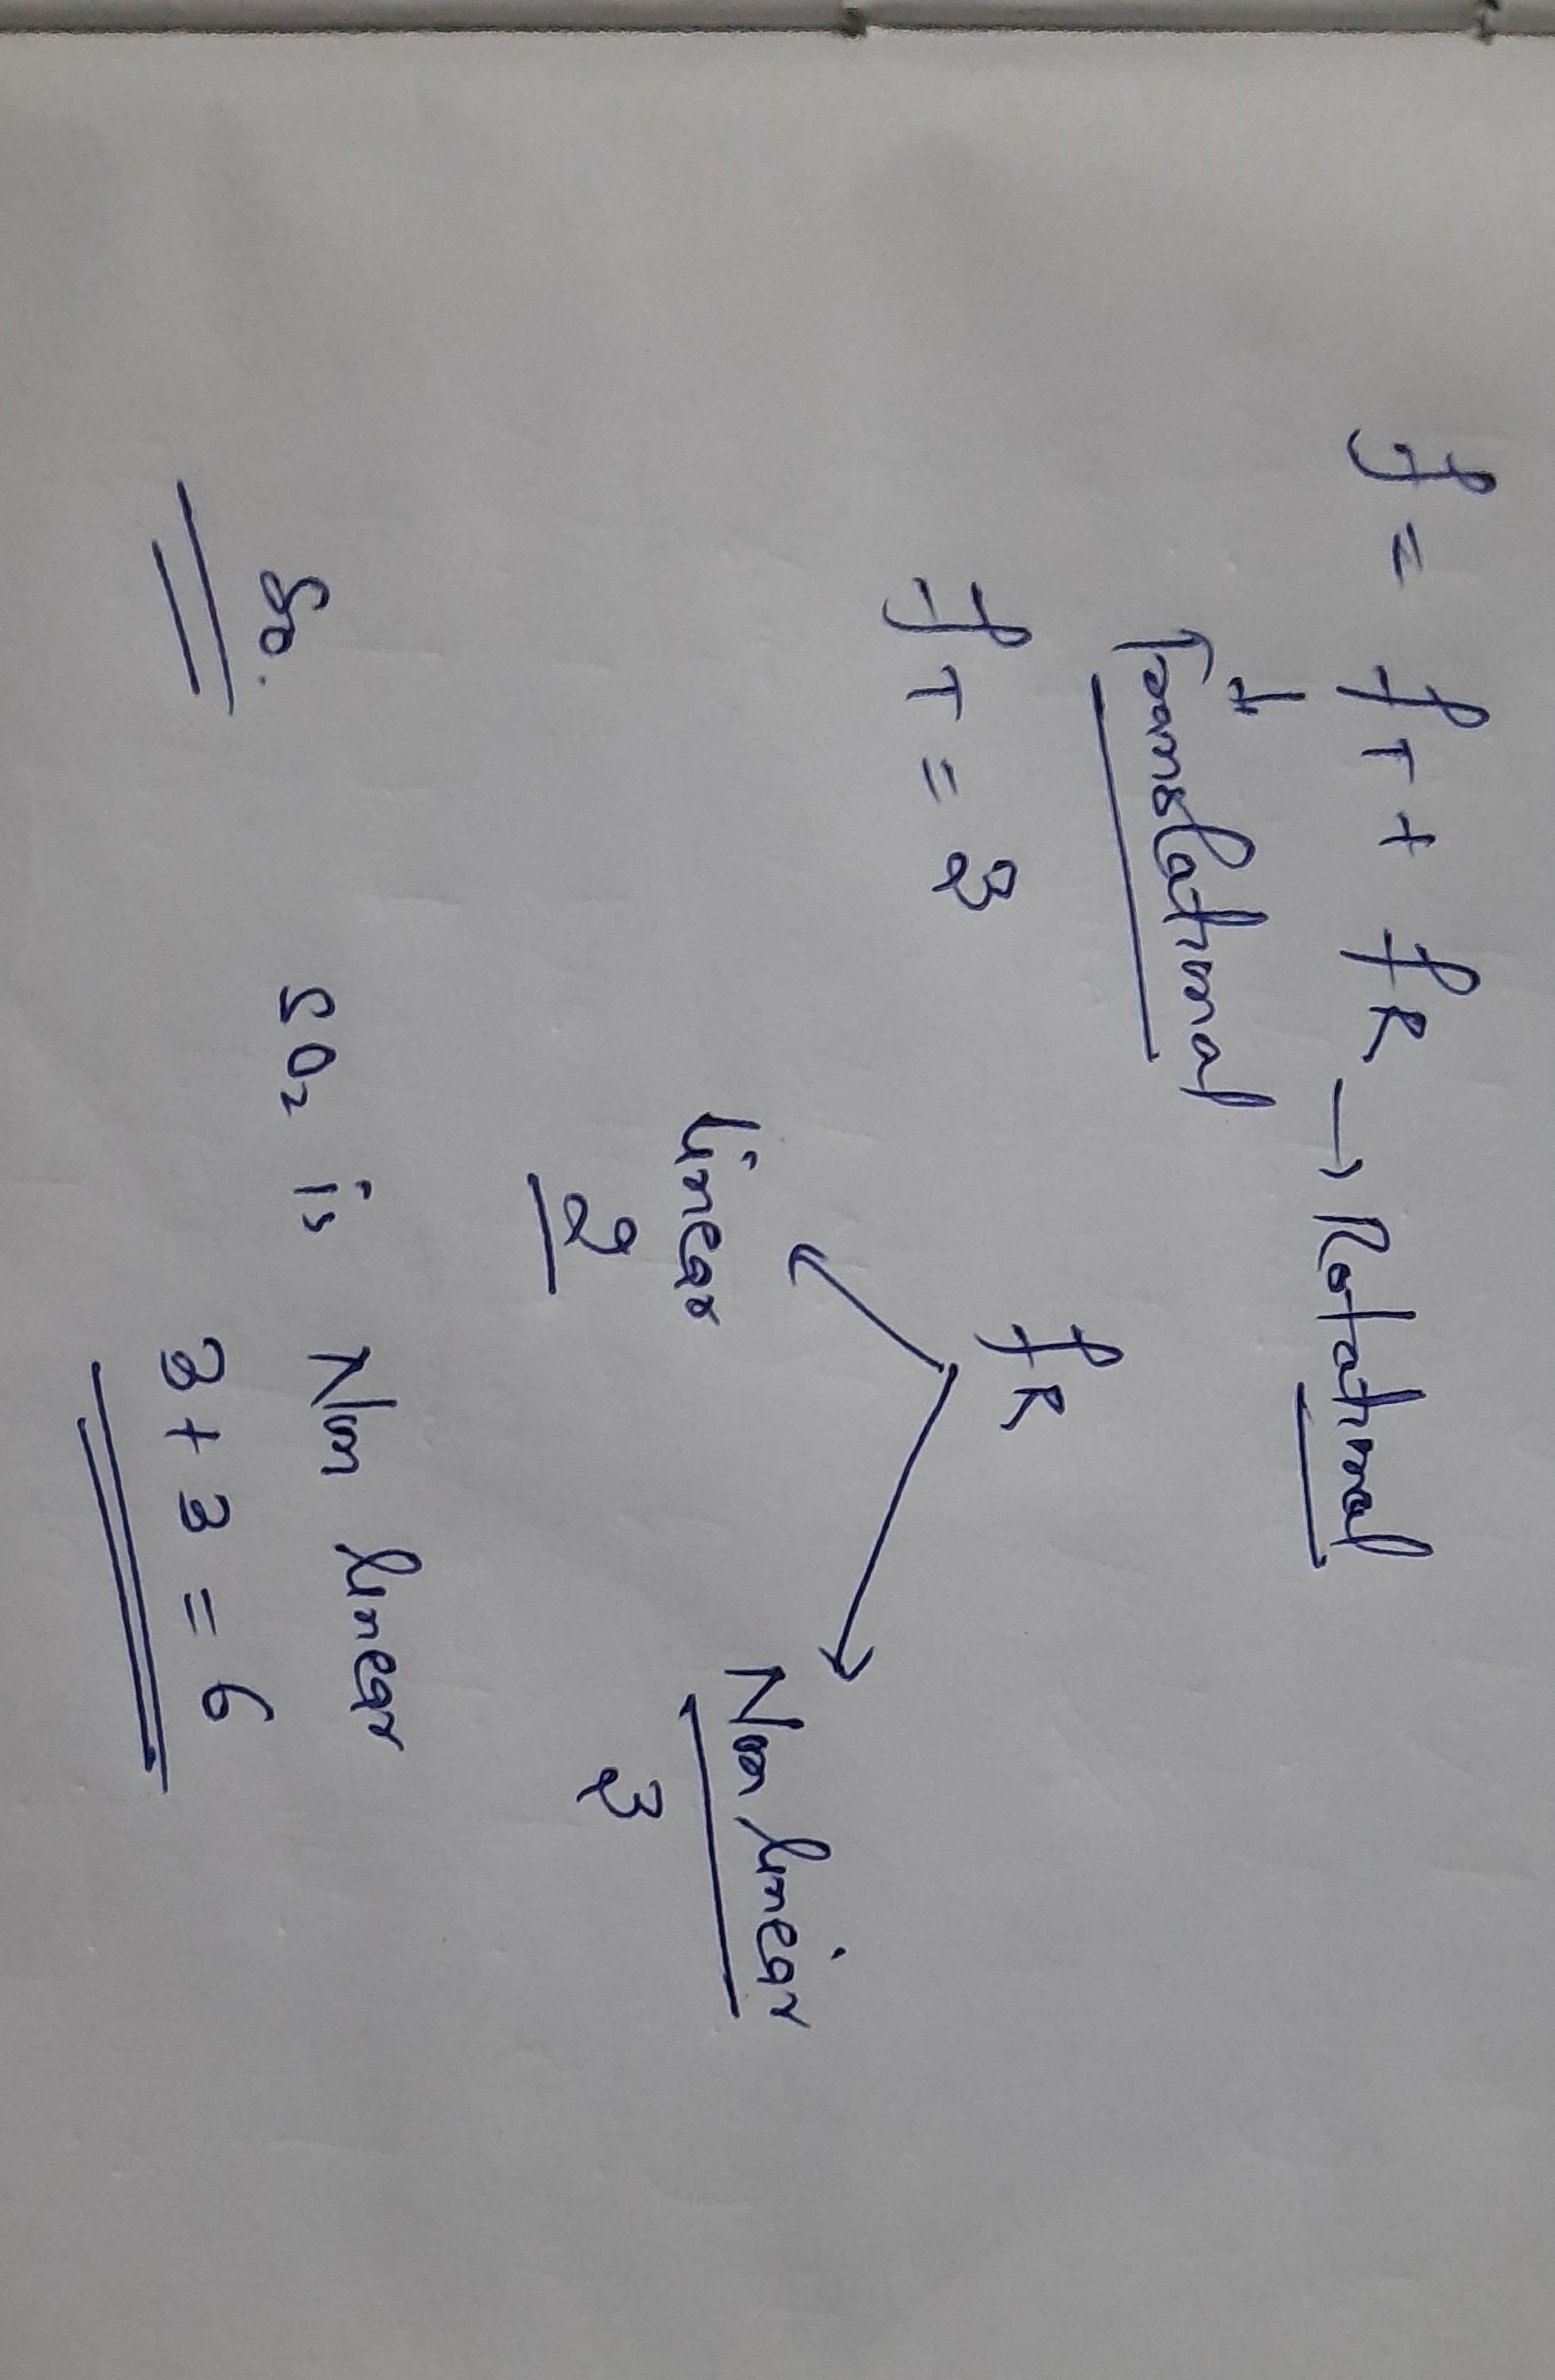 f = fT + fR → Rotational
↓
Translational
fT = 3 fR
linear Non linear
2 3
So. SO2 is Non linear
3 + 3 = 6